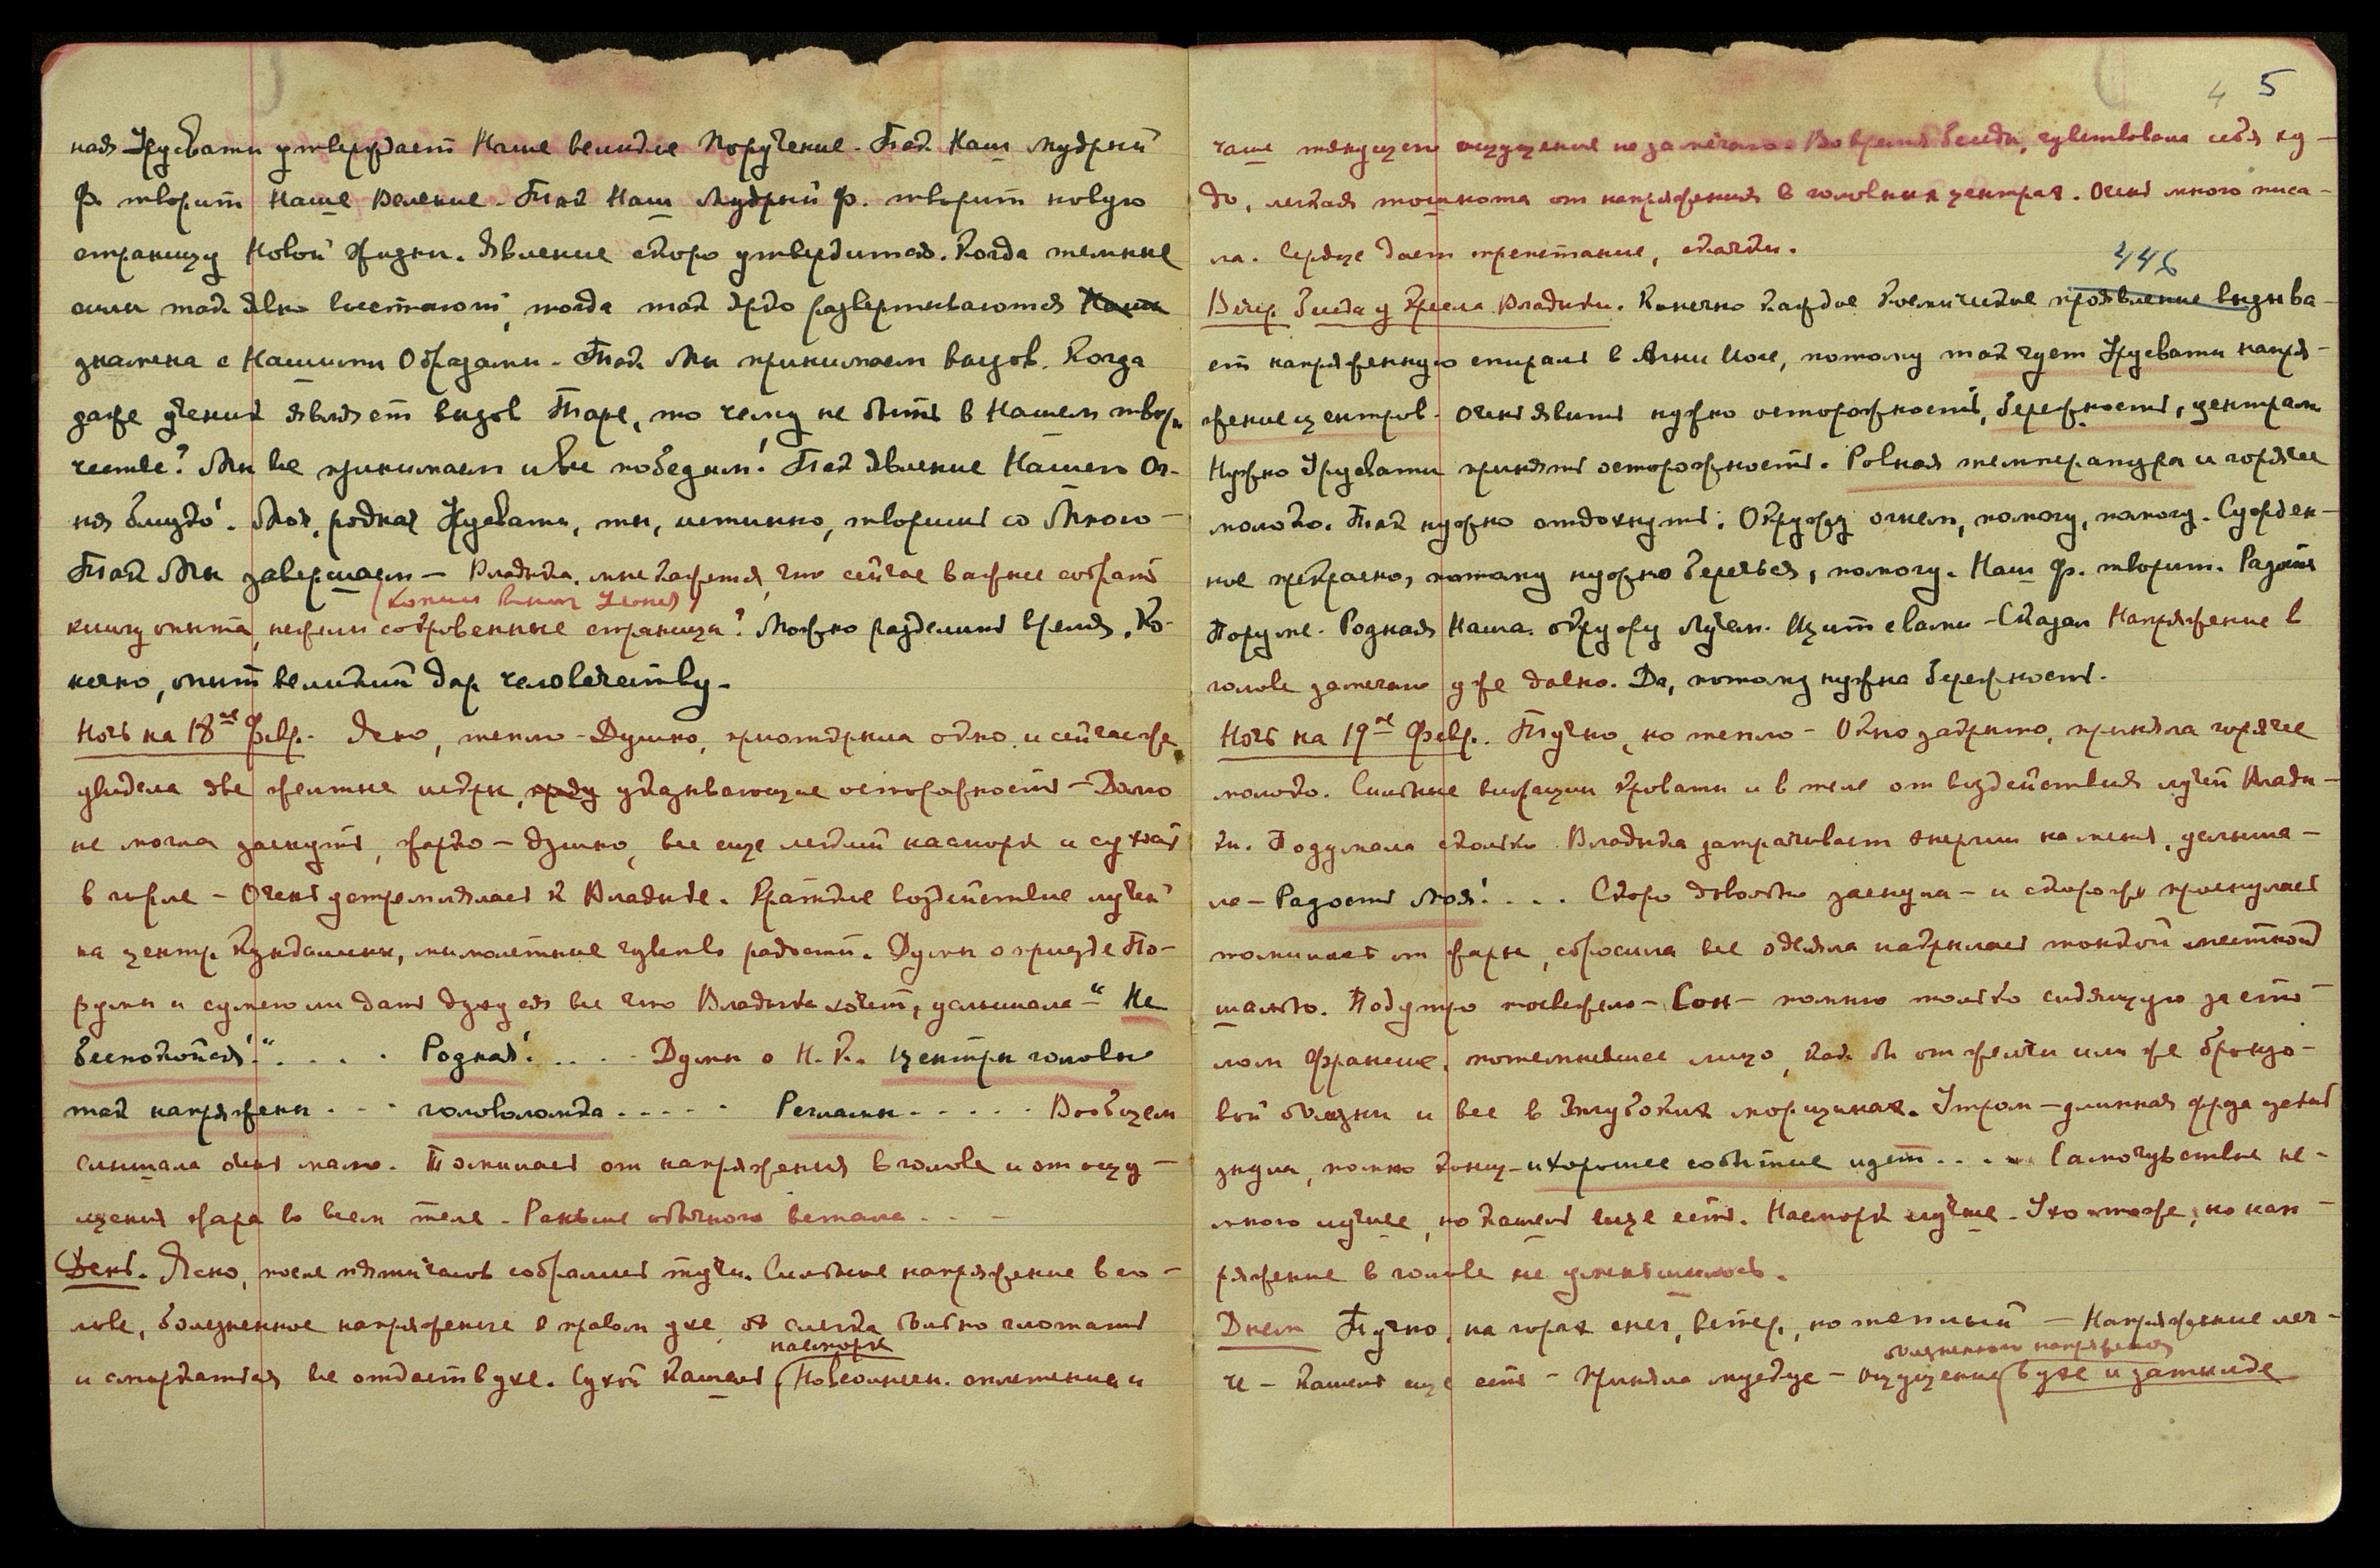 ная Урусвати утверждает Наше великое Поручение. Так Наш мудрый
Ф. творит Наше Веление. Так Наш Мудрый Ф. творит новую
страницу Новой жизни. Явление скоро утвердится. Когда темные
силы так явно восстают, тогда так ярко развертываются Наши
знамена с Нашими Образами. Так Мы принимаем вызов. Когда
даже ученик являет вызов Таре, то чему не быть в Нашем твор-
честве? Мы все принимаем и все победим! Так явление Нашего Ог-
ня близко! Моя, родная Урусвати, ты, истинно, творишь со Мною –
Так Мы завершаем – Владыка, мне кажется, что сейчас важнее собрать
(копии Учения)
книгу опыта, нежели сокровенные страницы? Можно разделить время. Ко-
нечно, опыт великий дар человечеству.
Ночь на 18ое Февр. Ясно, тепло – Душно, приоткрыла окно и сейчас же
увидела две желтые искры, указывающие осторожность – Долго
не могла заснуть, жарко – душно, все еще легкий насморк и сухость
в горле – Очень устремлялась к Владыке. Краткие воздействие лучей
на центр Кундалини, мимолетные чувства радости. Думы о приезде По-
румы и сумею ли дать ей все что Владыка хочет, услышала – "Не
беспокойся!" . . . . Родная! . . . . Думы о Н.К. Центры головы
так напряжены . . . головоломка . . . . . Регламы . . . . . В общем
слышала очень мало. Томилась от напряжения в голове и от ощу-
щения жара во всем теле. Раньше обычного встала . . .
День. Ясно, после пяти часов собрались тучи. Сильное напряжение в го-
лове, болезненное напряжение в правом ухе, слегка больно глотать
насморк
и сморкаться все отдает в ухе. Сухой кашель, (Новое сплетение и
4 5
чаще текущего ощущение не замечала. Во время беседы, чувствовала себя ху-
до, легкая тошнота от напряжения в головных центрах. Очень много писа-
ла. Сердце дает трепетание, скачки.
446
Вечер Беседа у Кресла Владыки. Конечно каждое космическое проявление вызыва-
ет напряженную спираль в Агни Йоге, потому так чует Урусвати напря-
жение центров. Очень явить нужно осторожность, бережность, центрам
Нужно Урусвати принять осторожность. Ровная температура и горячее
молоко. Так нужно отдохнуть. Окружу огнем, помогу, помогу. Сужден-
ное прекрасно, потому нужно беречься, помогу. Наш Ф. творит. Радость
Поруме. Родная Наша окружу Лучем. Щит с вами – Сказал Напряжение в
голове замечаю уже давно. Да, потому нужна бережность.
Ночь на 19ое Февр. Тучно, но тепло – Окно закрыто, приняла горячее
молоко. Сильные вибрации кровати и в теле от воздействия лучей Влады-
ки. Подумала сколько Владыка затрачивает энергии на меня, услыша-
ла – Радость Моя! . . . Скоро довольно заснула – и скоро же проснулась
томилась от жары, сбросила все одеяла и накрылась тонкой местной
шалью. Под утро посвежело – Сон – помню только сидящую за сто-
лом Франсис, потемневшее лицо, как бы от желчи или же бронзо-
вой болезни и все в глубоких морщинах. Утром – длинная фраза
, помню конец – и хорошее событие идет . . . . Самочувствие не-
много лучше, но кашель еще есть. Насморк лучше. Ухо тоже, но нап-
ряжение в голове не уменьшилось.
Днем Тучно, на горах снег, ветер, но теплый – Напряжение лег-
болезненного напряжения
че – кашель еще есть – Приняла мускус – ощущение (в ухе и затылке